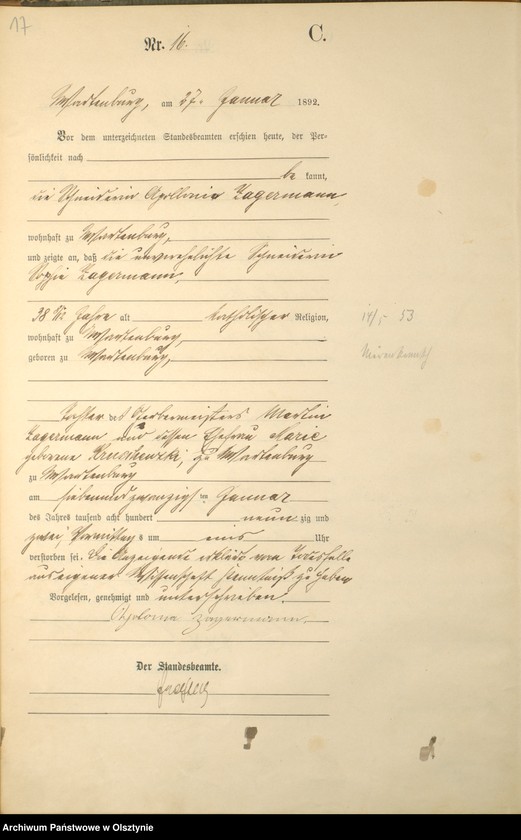 17
C.
Nr. 16.
Wartenburg, am 27. Januar 1892.
Vor dem unterzeichneten Standesbeamten erschien heute, der Per-
sönlichkeit nach
be kannt,
die Schneiderin Apollonia Zagermann,
wohnhaft zu Wartenburg,
und zeigte an, daß die unverehelichte Schneiderin
Sophie Zagermann,
38 Jahre alt katholischer Religion,
wohnhaft zu Wartenburg,
geboren zu Wartenburg,
Tochter des Gerbermeisters Martin
Zagermann und dessen Ehefrau Marie
geborene zu Wartenburg
zu Wartenburg
am siebenundzwanzigsten Januar
des Jahres tausend acht hundert neun zig und
zwei, Vormittags um eins Uhr
verstorben sei. Die Anzeigende erklärte vom Todesfalle
aus eigener Wissenschaft Kenntniß zu haben.
Vorgelesen, genehmigt und unterschrieben.
Apolonia Zagermann
Der Standesbeamte.
14/5 53
Archiwum Państwowe w Olsztynie